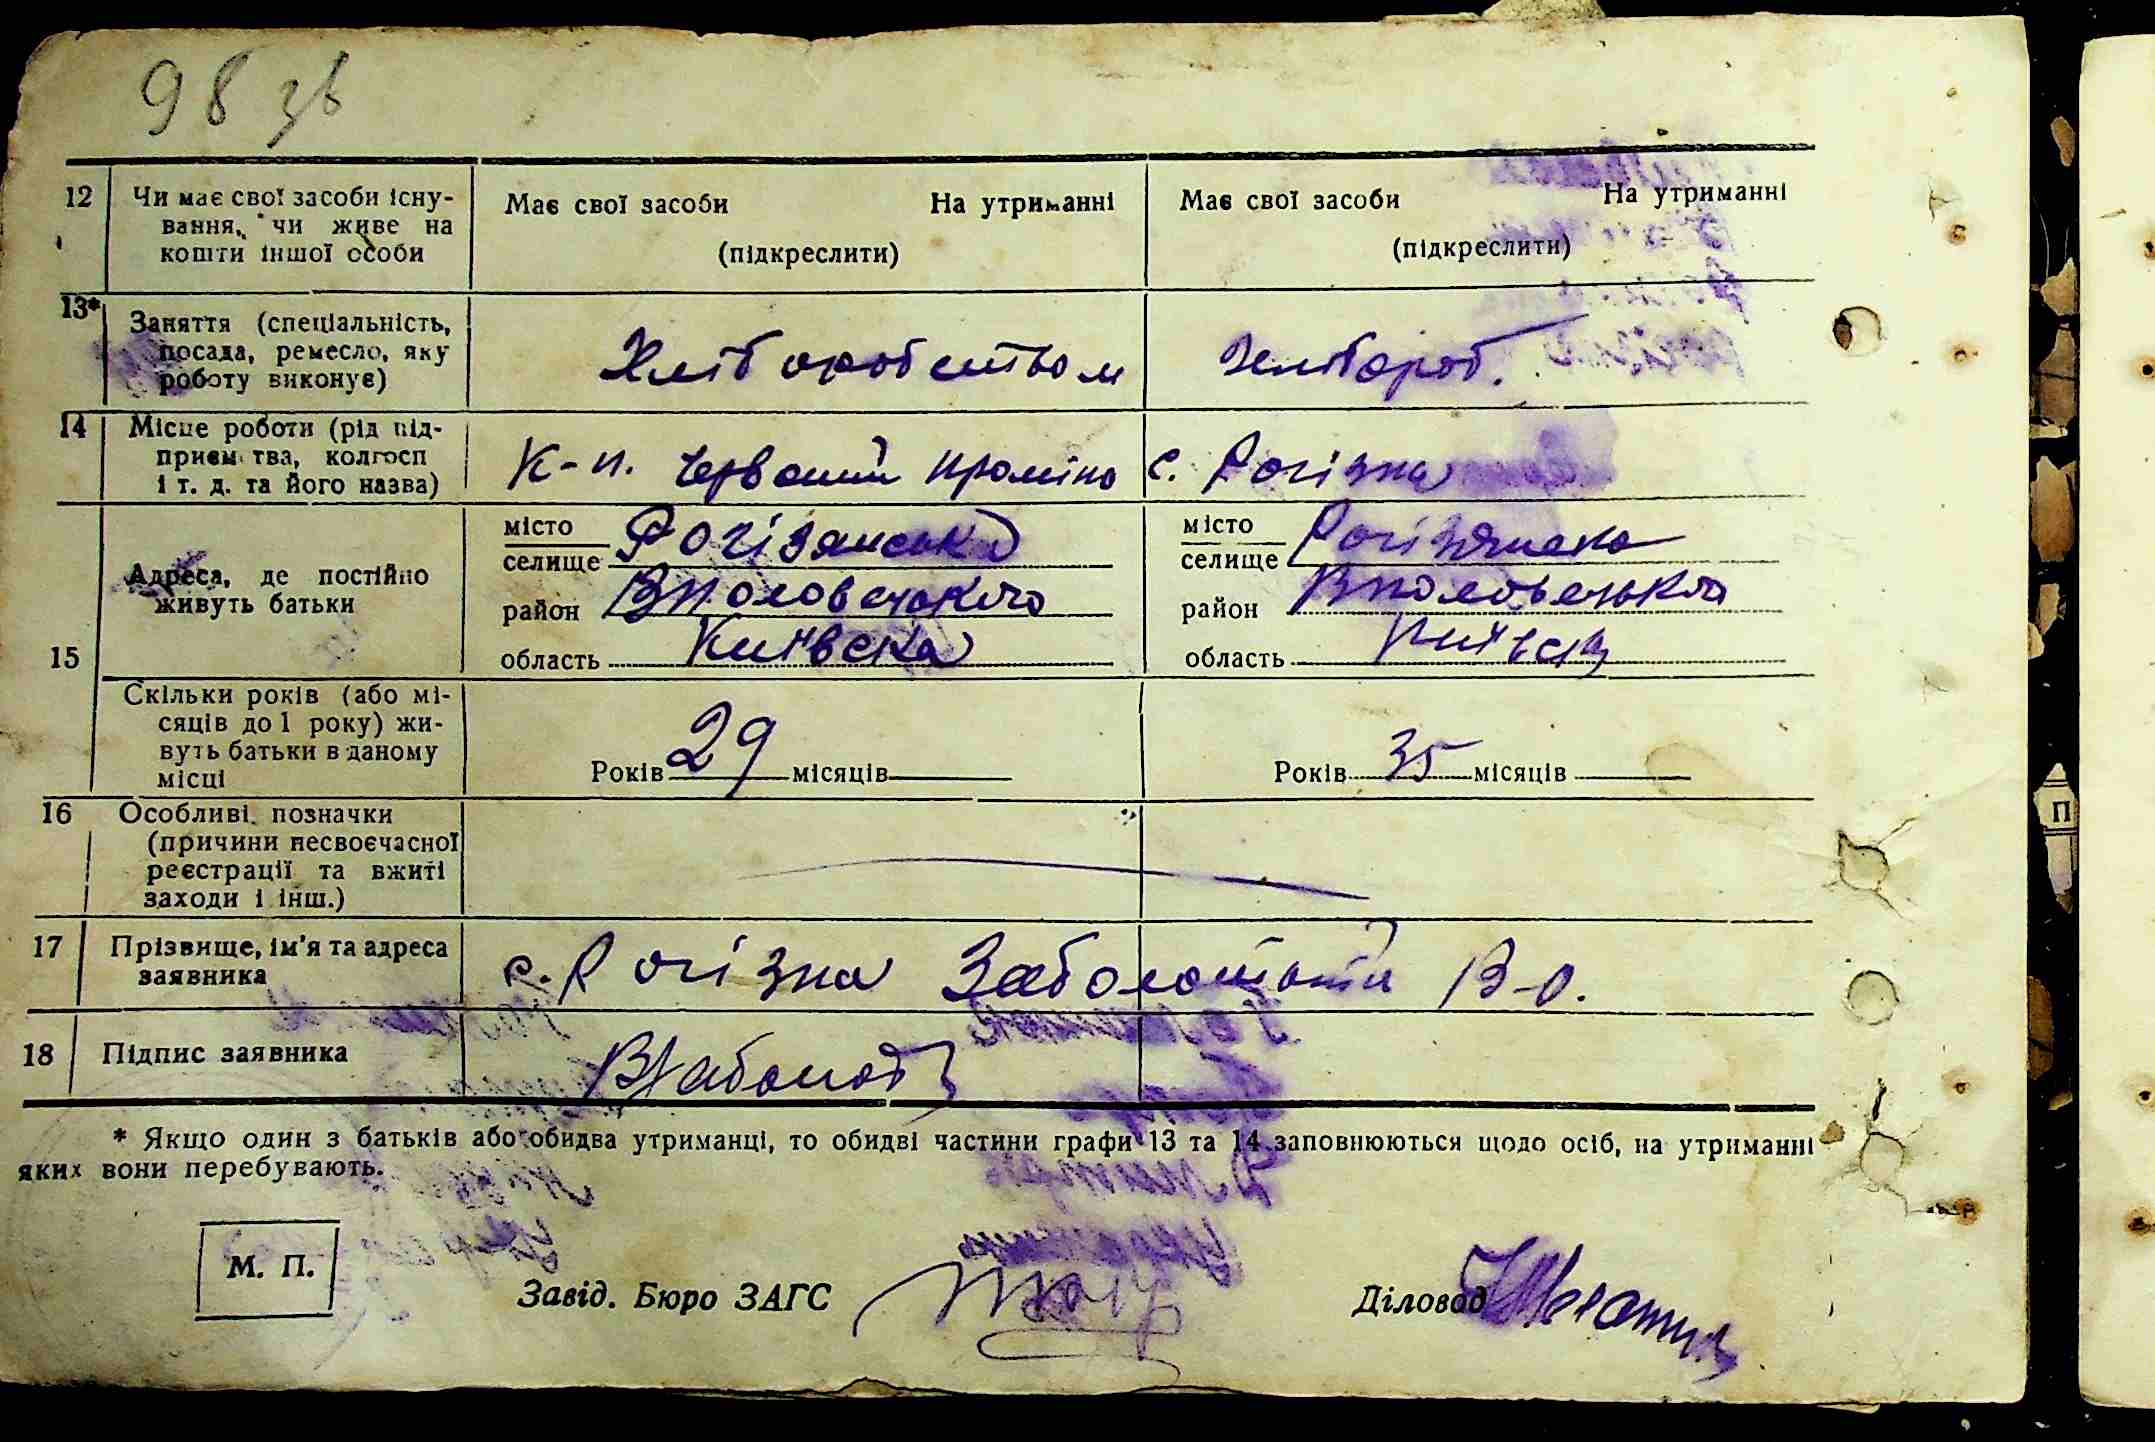 98 зв
12 Чи має свої засоби існу-
вання, чи живе на
кошти іншої особи
Має свої засоби На утриманні
(підкреслити)
Має свої засоби На утриманні
(підкреслити)
13* Заняття (спеціальність,
посада, ремесло, яку
роботу виконує)
Хліборобством
Хлібороб.
14 Місце роботи (рід під-
приємства, колгосп
і т. д. та його назва)
К-п. Червоний Проміно
с. Рогізна
15 Адреса, де постійно
живуть батьки
місто
селище Рогізянська
район Володарського
область Київска
місто
селище Рогізянська
район
область
Скільки років (або мі-
сяців до 1 року) жи-
вуть батьки в даному
місці
Років 29 місяців
Років 35 місяців
16 Особливі позначки
(причини несвоєчасної
реєстрації та вжиті
заходи і інш.)
17 Прізвище, ім'я та адреса
заявника
с. Рогізна Заболотній В-о.
18 Підпис заявника
* Якщо один з батьків або обидва утриманці, то обидві частини графи 13 та 14 заповнюються щодо осіб, на утриманні
яких вони перебувають.
М. П.
Завід. Бюро ЗАГС
Діловод
П